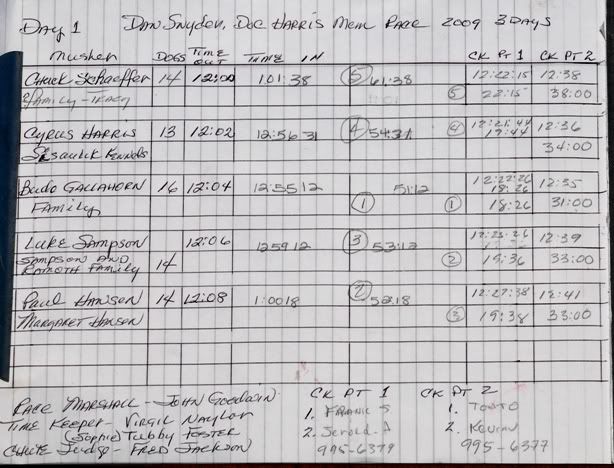 Day 1 Dan Snyder, Doc Harris Mem Race 2009 3 Days
Musher Dogs Time Out Time In CK PT 1 CK PT 2
Chuck Schaeffer 14 12:00 1:01:38 5 61:38 12:22:15 12:38
& family - Tracy 5 22:15 38:00
Cyrus Harris 13 12:02 12:56 31 4 54:31 4 12:21:44 12:36
Sisaulik Kennels 19:44 34:00
Budo Gallahorn 16 12:04 12:55 12 51:12 12:22:26 12:35
Family 1 1 18:26 31:00
Luke Sampson 12:06 12 59 12 3 53:12 12:39
Sampson and Family 14 2 19:36 33:00
Paul Hanson 14 12:08 1:00 18 2 52:18 12:27:38 12:41
Margaret Hanson 3 19:38 33:00
Race Marshall - John Goodwin CK PT 1 CK PT 2
Time Keeper - Virgil Naylor 1. Frank S 1.
(Sophie) Tubby Foster 2. Jerold 2. Kevin
Chute Judge - Fred Jackson 995-6379 995-6377